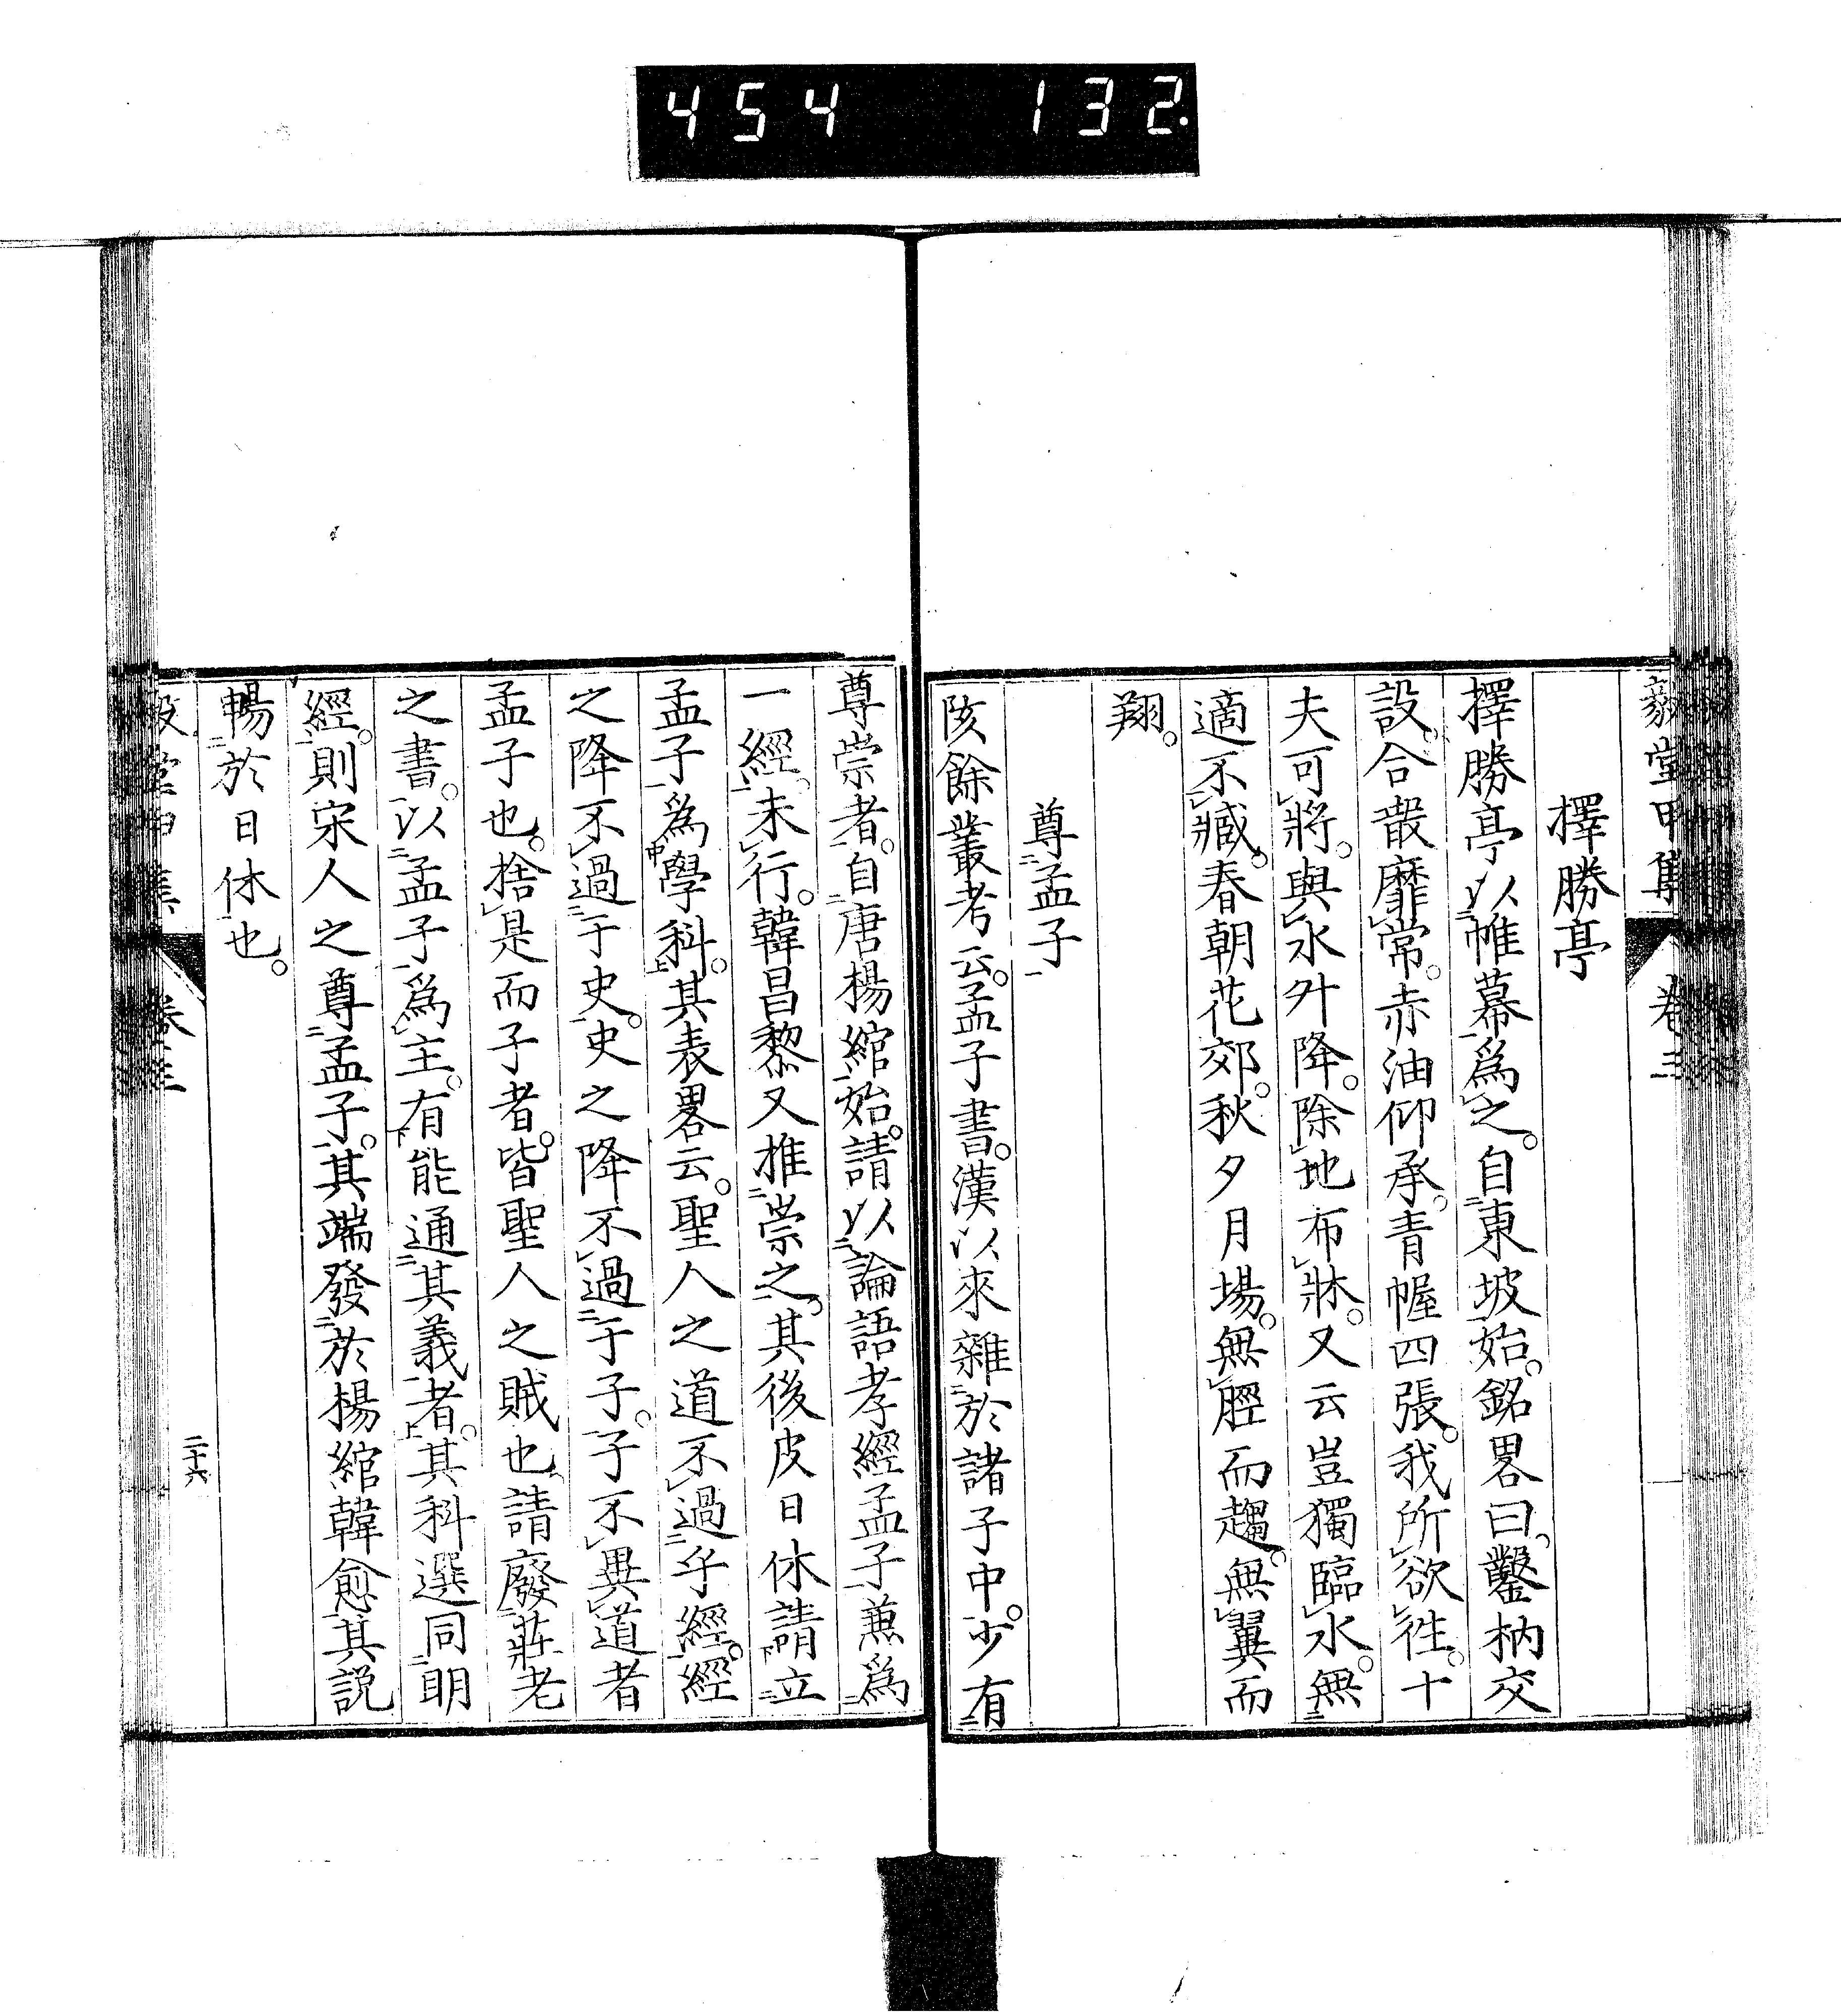 454 132.
毅堂甲集 卷三
擇勝亭
擇勝亭以帷幕爲之。自東坡始。銘畧曰。鑿枘交
設。合散靡常。赤油仰承。青幄四張。我所欲徃。十
夫可將。與水升降。除地布牀。又云豈獨臨水。無
適不臧。春朝花郊。秋夕月場。無脛而趨。無翼而
翔。
尊孟子
陔餘叢考云。孟子書。漢以來雜於諸子中。少有
尊崇者。自唐楊綰始。請以論語孝經孟子兼爲
一經。未行。韓昌黎又推崇之。其後皮日休請立
孟子爲學科。其表畧云。聖人之道不過乎經。經
之降不過于史。史之降不過于子。子不異道者
孟子也。捨是而子者。皆聖人之賊也。請廢莊老
之書。以孟子爲主。有能通其義者。其科選同明
經。則宋人之尊孟子。其端發於楊綰韓愈其説
暢於日休也。
毅堂甲集 卷三 二十六